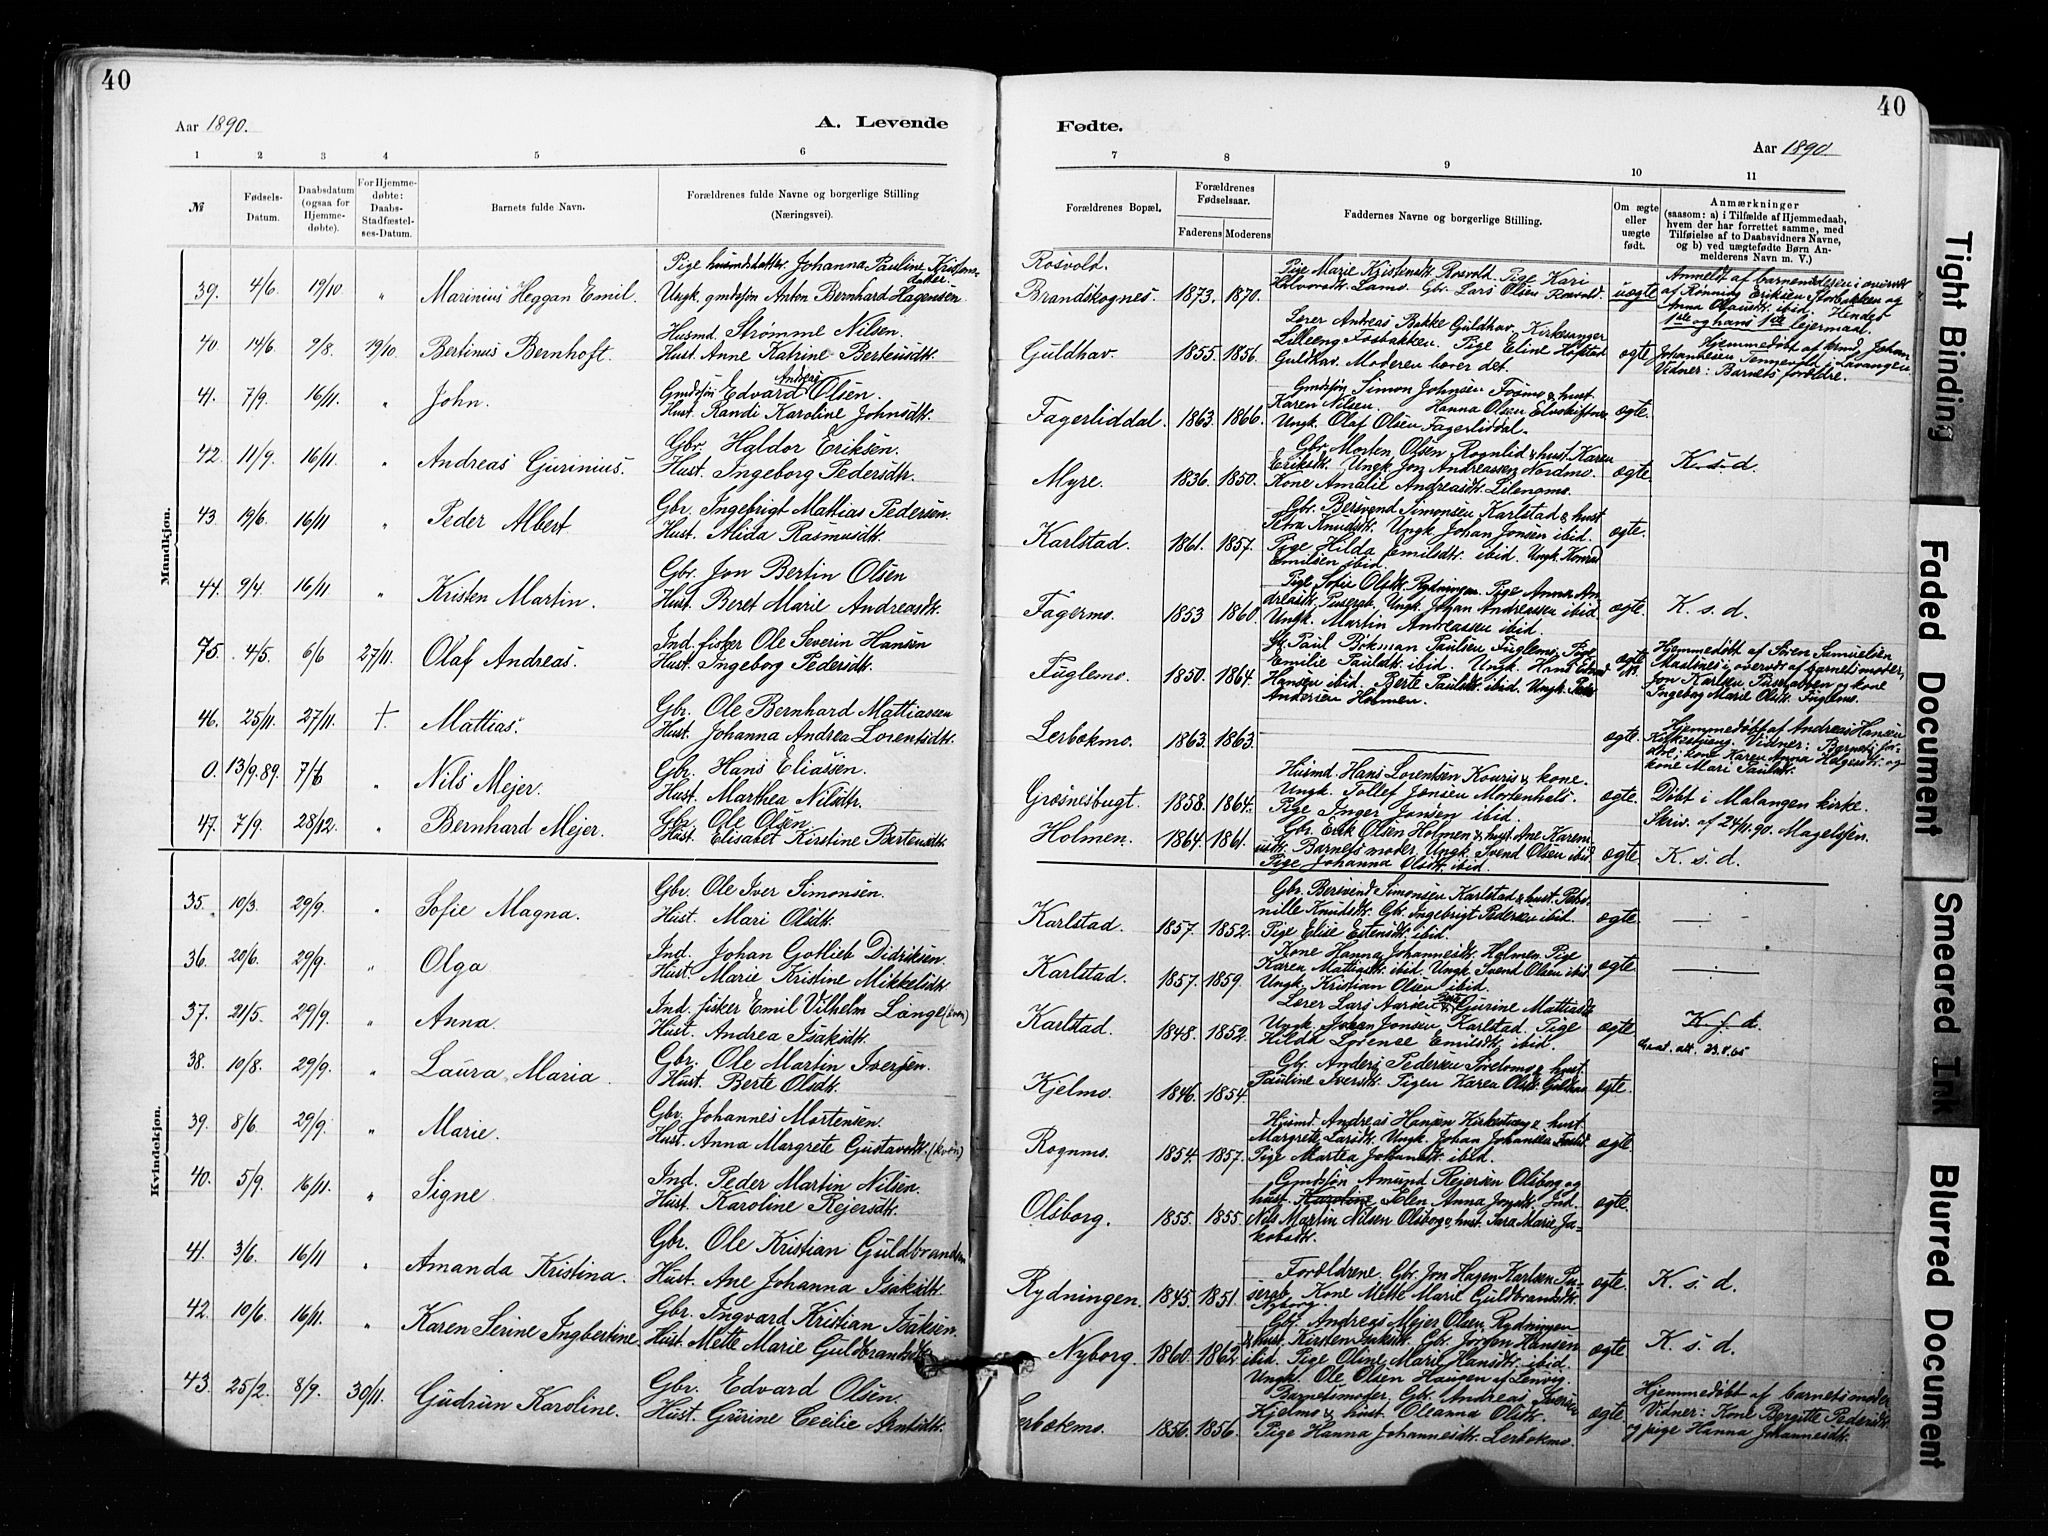 40
Aar 1890.
A. Levende
1 2 3 4 5 6
№
Fødsels-
Datum.
Daabsdatum
(ogsaa for
Hjemme-
døbte).
For Hjemme-
døbte:
Daabs-
Stadfæstel-
ses-Datum.
Barnets fulde Navn.
Forældrenes fulde Navne og borgerlige Stilling
(Næringsvei).
Mandkjøn.
39. 4/6. 19/10 " Marinius Heggan Emil.
Pige husmdsdatter Johanna Pauline Kristens-
datter.
Ungk. gmdsøn Anton Bernhard Hagensen
40. 14/6. 9/8. 19/10. Bertinus Bernhoft.
Husmd. Strømme Nilsen.
Hust. Anne Katrine Berteusdtr.
41. 7/9. 16/11. " John.
Gmdsøn Edvard Andreas Olsen.
Hust. Randi Karoline Johnsdtr.
42. 11/9. 16/11. " Andreas Gurinius.
Gbr. Haldor Eriksen.
Hust. Ingeborg Pedersdtr.
43. 19/6. 16/11 " Peder Albert
Gbr. Ingebrigt Mattias Pedersen.
Hust. Alida Rasmusdtr.
44. 9/4. 16/11 " Kristen Martin.
Gbr. Jon Bertin Olsen
Hust. Beret Marie Andreasdtr.
45. 4/5. 6/6 27/11. Olaf Andreas.
Ind. fisker Ole Severin Hansen
Hust. Ingeborg Pedersdtr.
46. 25/11. 27/11. † Mattias.
Gbr. Ole Bernhard Mattiassen
Hust. Johanna Andrea Lorentsdtr.
0. 13/9.89. 7/6 " Nils Mejer.
Gbr. Hans Eliassen.
Hust. Marthea Nilsdtr.
47. 7/9. 28/12. " Bernhard Mejer.
Gbr. Ole Olsen
Hust. Elisabet Kirstine Berteusdtr.
Kvindekjøn.
35. 10/3. 29/9. " Sofie Magna.
Gbr. Ole Iver Simonsen.
Hust. Mari Olsdtr.
36. 20/6. 29/9. " Olga
Ind. Johan Gotlieb Didriksen.
Hust. Marie Kristine Mikkelsdtr.
37. 21/5. 29/9. " Anna.
Ind. fisker Emil Vilhelm Lange (kvæn)
Hust. Andrea Isaksdtr.
38. 10/8. 29/9. " Laura Maria.
Gbr. Ole Martin Iversen.
Hust. Berte Olsdtr.
39. 8/6. 29/9. " Marie.
Gbr. Johannes Mortensen.
Hust. Anna Margrete Gustavsdtr. (kvæn)
40. 5/9. 16/11. " Signe.
Ind. Peder Martin Nilsen.
Hust. Karoline Rejersdtr.
41. 3/6. 16/11 " Amanda Kristina.
Gbr. Ole Kristian Guldbrandsen
Hust. Ane Johanna Isaksdtr.
42. 10/6. 16/11. " Karen Serine Ingbertine.
Gbr. Ingvard Kristian Isaksen.
Hust. Mette Marie Guldbrandsdtr.
43. 25/2. 8/9. 30/11. Gudrun Karoline.
Gbr. Edvard Olsen.
Hust. Gurine Cecilie Arntsdtr.
40
Fødte.
Aar 1890.
7 8 9 10 11
Forældrenes Bopæl.
Forældrenes
Fødselsaar.
Faderens Moderens
Faddernes Navne og borgerlige Stilling.
Om ægte
eller
uægte
født.
Anmærkninger
(saasom: a) i Tilfælde af Hjemmedaab,
hvem der har forrettet samme, med
Tilføielse af to Daabsvidners Navne,
og b) ved uægtefødte Børn An-
melderens Navn m. V.)
Rosvold.
Brandskognes. 1873. 1870.
Pige Marie Kristensdtr. Rosvold. Pige Kari
Halvorsdtr. Lamo. Gbr. Lars Olsen Rosvold.
uægte
Anmeldt af barnemoderen i overvær
af Rønnaug Eriksen Storbakken og
Anna Olausdtr. ibid. Hendes
1ste og hans 1ste lejermaal.
Guldhav. 1855. 1856.
Lærer Andreas Bakke Guldhav. Kirkesanger
Lilleeng Fosbakken. Pige Eline Hofstad
Guldhav. Moderen bærer det.
ægte
Hjemmedøbt af hmd. Johan
Johannesen Tennevold i Lavangen
Vidner: Barnets forældre.
Fagerliddal. 1863. 1866.
Gmdsøn Simon Johnsen Fosmo & hust.
Karen Nilsen. Hanna Olsen Elvskiftnes
Ungk. Olaf Olsen Fagerliddal.
ægte.
Myre. 1836. 1850.
Gbr. Morten Olsen Rognlid & hust. Karen
Eriksdtr. Ungk. Jon Andreassen Nordmo.
Kone Amalie Andreasdtr. Lilengmo.
ægte. K. s. d.
Karlstad. 1861. 1857.
Gbr. Bersvend Simonsen Karlstad & hust.
Petra Knudsdtr. Ungk. Johan Jonsen ibid.
Pige Hilda Emilsdtr. ibid. Ungk. Konrad
Emilsen ibid.
ægte.
Fagermo. 1853 1860.
Pige Sofie Olsdtr. Rydningen. Pige Anna An-
dreasdtr. Puserab. Ungk. Johan Andreassen ibid.
Ungk. Martin Andreassen ibid.
ægte K. s. d.
Fuglemo. 1850. 1864.
Gbr. Paul Bökman Paulsen Fuglemo. Pige
Emilie Paulsdtr. ibid. Ungk. Hans Edvard
Hansen ibid. Berte Paulsdtr. ibid. Ungk. Peder
Andersen Holmen.
ægte
Hjemmedøbt af Sven Samuelsen
Maalsnes i overvær af barnets moder,
Jon Karlsen Puserabben og kone
Ingeborg Marie Olsdtr. Fuglemo.
Lerbækmo. 1863. 1863.
ægte.
Hjemmedøbt af Andreas Hansen
Kirkestveng. Vidner: Barnets for-
ældre, kone Karen Anna Helgesdtr. og
kone Mari Paulsdtr.
Græsnesbugt. 1858. 1864.
Husmd. Hans Lorentsen Kouris & kone.
Ungk. Tollef Jensen Mortenhals.
Pige Inger Jonsen ibid.
ægte. Døbt i Malangen kirke.
Skriv. af 24/11.90. Magelssen.
Holmen. 1864. 1861.
Gbr. Erik Olsen Holmen & hust. Ane Karen
Barnets moder. Ungk. Svend Olsen ibid
Pige Johanna Olsdtr. ibid.
ægte K. s. d.
Karlstad. 1857. 1852.
Gbr. Bersvend Simonsen Karlstad & hust. Petro-
nille Knudsdtr. Gbr. Ingebrigt Pedersen ibid.
Pige Elise Estensdtr. ibid.
ægte.
Karlstad. 1857. 1859.
Kone Hanna Johannesdtr. Holmen. Pige
Karen Mattiasdtr. ibid. Ungk. Svend Olsen ibid.
Ungk. Kristian Olsen ibid.
ægte
Karlstad. 1848. 1852.
Lærer Lars Aarsen & Pige Gurine Mattiasdtr.
Ungk. Johan Jonsen Karlstad. Pige
Hilda Lorense Emilsdtr. ibid.
ægte K. s. d.
Daat. att. 23.8.65
Kjelmo. 1846. 1854.
Gbr. Anders Pedersen Sørelmo & hust.
Pauline Iversdtr. Pigen Karen Olsdtr. Guldhav
ægte
Rognmo. 1854. 1857.
Husmd. Andreas Hansen Kirkestveng & hust.
Margrete Larsdtr. Ungk. Johan Johansen Fosli
Pige Martea Johansdtr. ibid.
ægte
Olsborg. 1855. 1855.
Gmdsøn Amund Rejersen Olsborg og
hust. Karoline Elen Anna Jonsdtr. Ind.
Nils Martin Nilsen Olsborg & hust. Sara Marie Ja-
kobsdtr.
ægte.
Rydningen. 1845. 1851.
Forældrene. Gbr. Jon Hagen Karlsen Pu-
serab. Kone Mette Marie Guldbrandsdtr.
Nyborg.
ægte. K. s. d.
Nyborg. 1860. 1862
Gbr. Andreas Mejer Olsen Rydningen
& hust. Kirsten Isaksdtr. Gbr. Jordan Hansen
ibid. Pige Oline Marie Hansdtr. ibid.
Ungk. Ole Olsen Haugen af Lenvig
ægte K. s. d.
Lerbækmo. 1856. 1856.
Barnetsmoder. Gbr. Andreas Iversen
Kjelmo & hust. Oleanna Olsdtr.
Pige Hanna Johannesdtr. Lerbækmo.
ægte
Hjemmedøbt af barnets moder
Vidner: Kone Bergitte Pedersdtr.
og pige Hanna Johannesdtr.
Tight Binding
Faded Document
Smeared Ink
Blurred Document